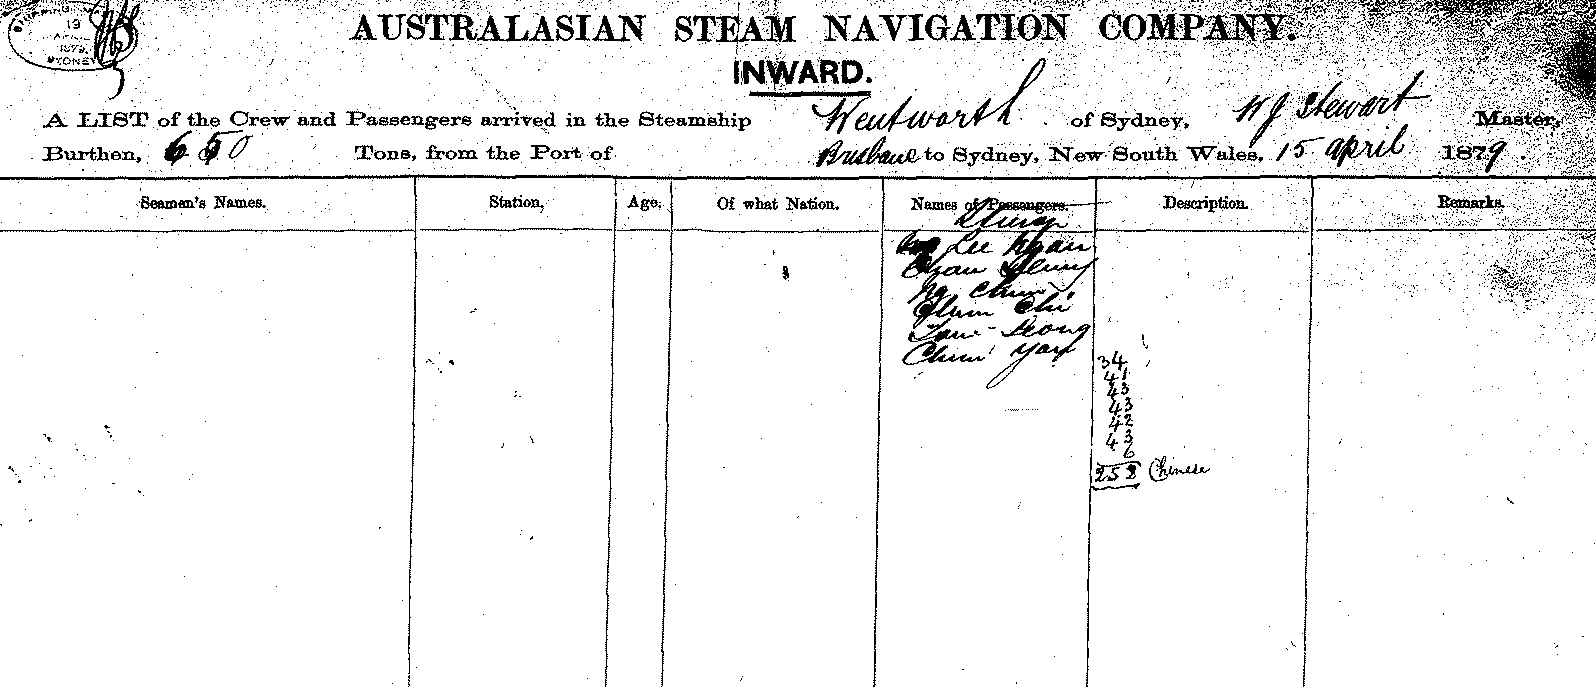 SYDNEY
AUSTRALASIAN STEAM NAVIGATION COMPANY.
INWARD.
A LIST of the Crew and Passengers arrived in the Steamship Wentworth of Sydney, W J Stewart Master,
Burthen, 650 Tons, from the Port of Brisbane to Sydney, New South Wales, 15 april 1879.
Seamen's Names. Station, Age, Of what Nation. Names of Passengers. Description. Remarks.
Lee
Chum Chi
Chum Yan
34
41
43
43
42
43
6
252 Chinese